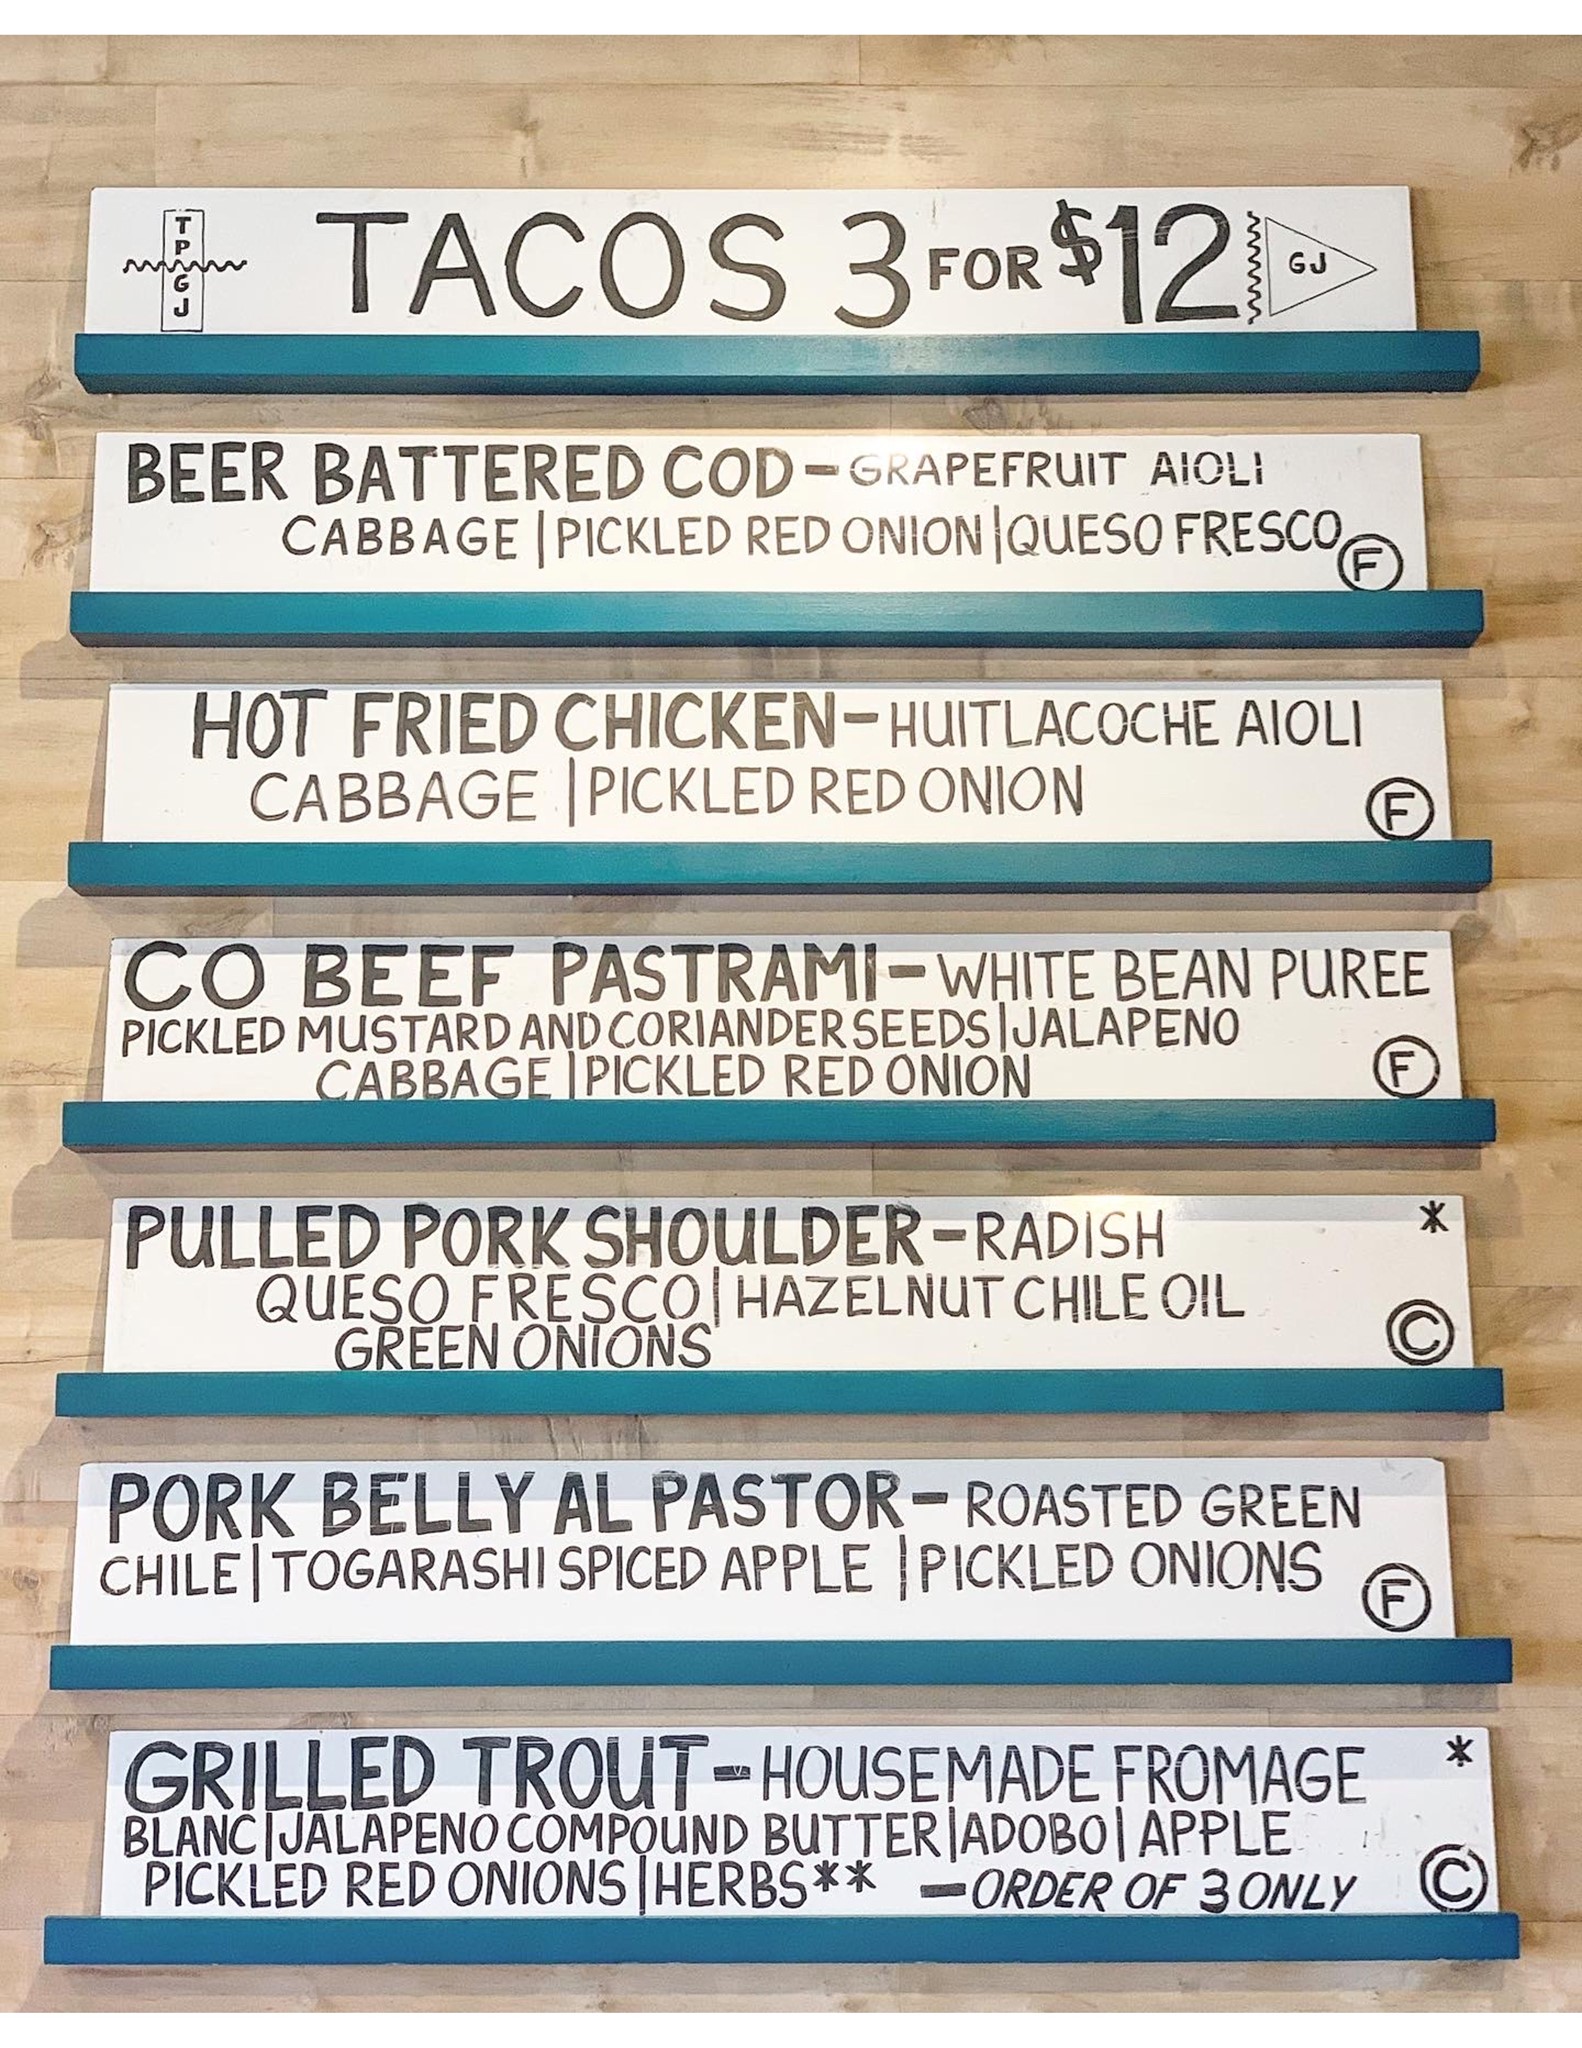 TPGJ TACOS 3 FOR $12 GJ
BEER BATTERED COD-GRAPEFRUIT AIOLI
CABBAGE|PICKLED RED ONION|QUESO FRESCO
F
HOT FRIED CHICKEN-HUITLACOCHE AIOLI
CABBAGE|PICKLED RED ONION
F
CO BEEF PASTRAMI-WHITE BEAN PUREE
PICKLED MUSTARD AND CORIANDER SEEDS|JALAPENO
CABBAGE|PICKLED RED ONION
F
PULLED PORK SHOULDER-RADISH *
QUESO FRESCO|HAZELNUT CHILE OIL
GREEN ONIONS
C
PORK BELLY AL PASTOR-ROASTED GREEN
CHILE|TOGARASHI SPICED APPLE|PICKLED ONIONS
F
GRILLED TROUT-HOUSEMADE FROMAGE *
BLANC|JALAPENO COMPOUND BUTTER|ADOBO|APPLE
PICKLED RED ONIONS|HERBS** -ORDER OF 3 ONLY
C